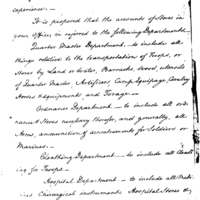 experience. —
It is proposed that the accounts of Stores in
your office is referred to the following Departments
Quarter Master Department — to include all
things relative to the transportation of Troops, or
Stores by Land or Water, Barracks, wood, utensils
of Quarter Master Artificers Camp Equipage, Cavalry
Horses & equipments and Forage. —
Ordnance Department — to include all ord-
nance & Stores necessary therefor, and generally, all
Arms, ammunition & accoutrements for Soldiers or
Marines. —
Cloathing Department — to include all Cloath
ing for Troops —
Hospital Department — to include all Medi-
cines Chirurgical instruments Hospital Stores &c